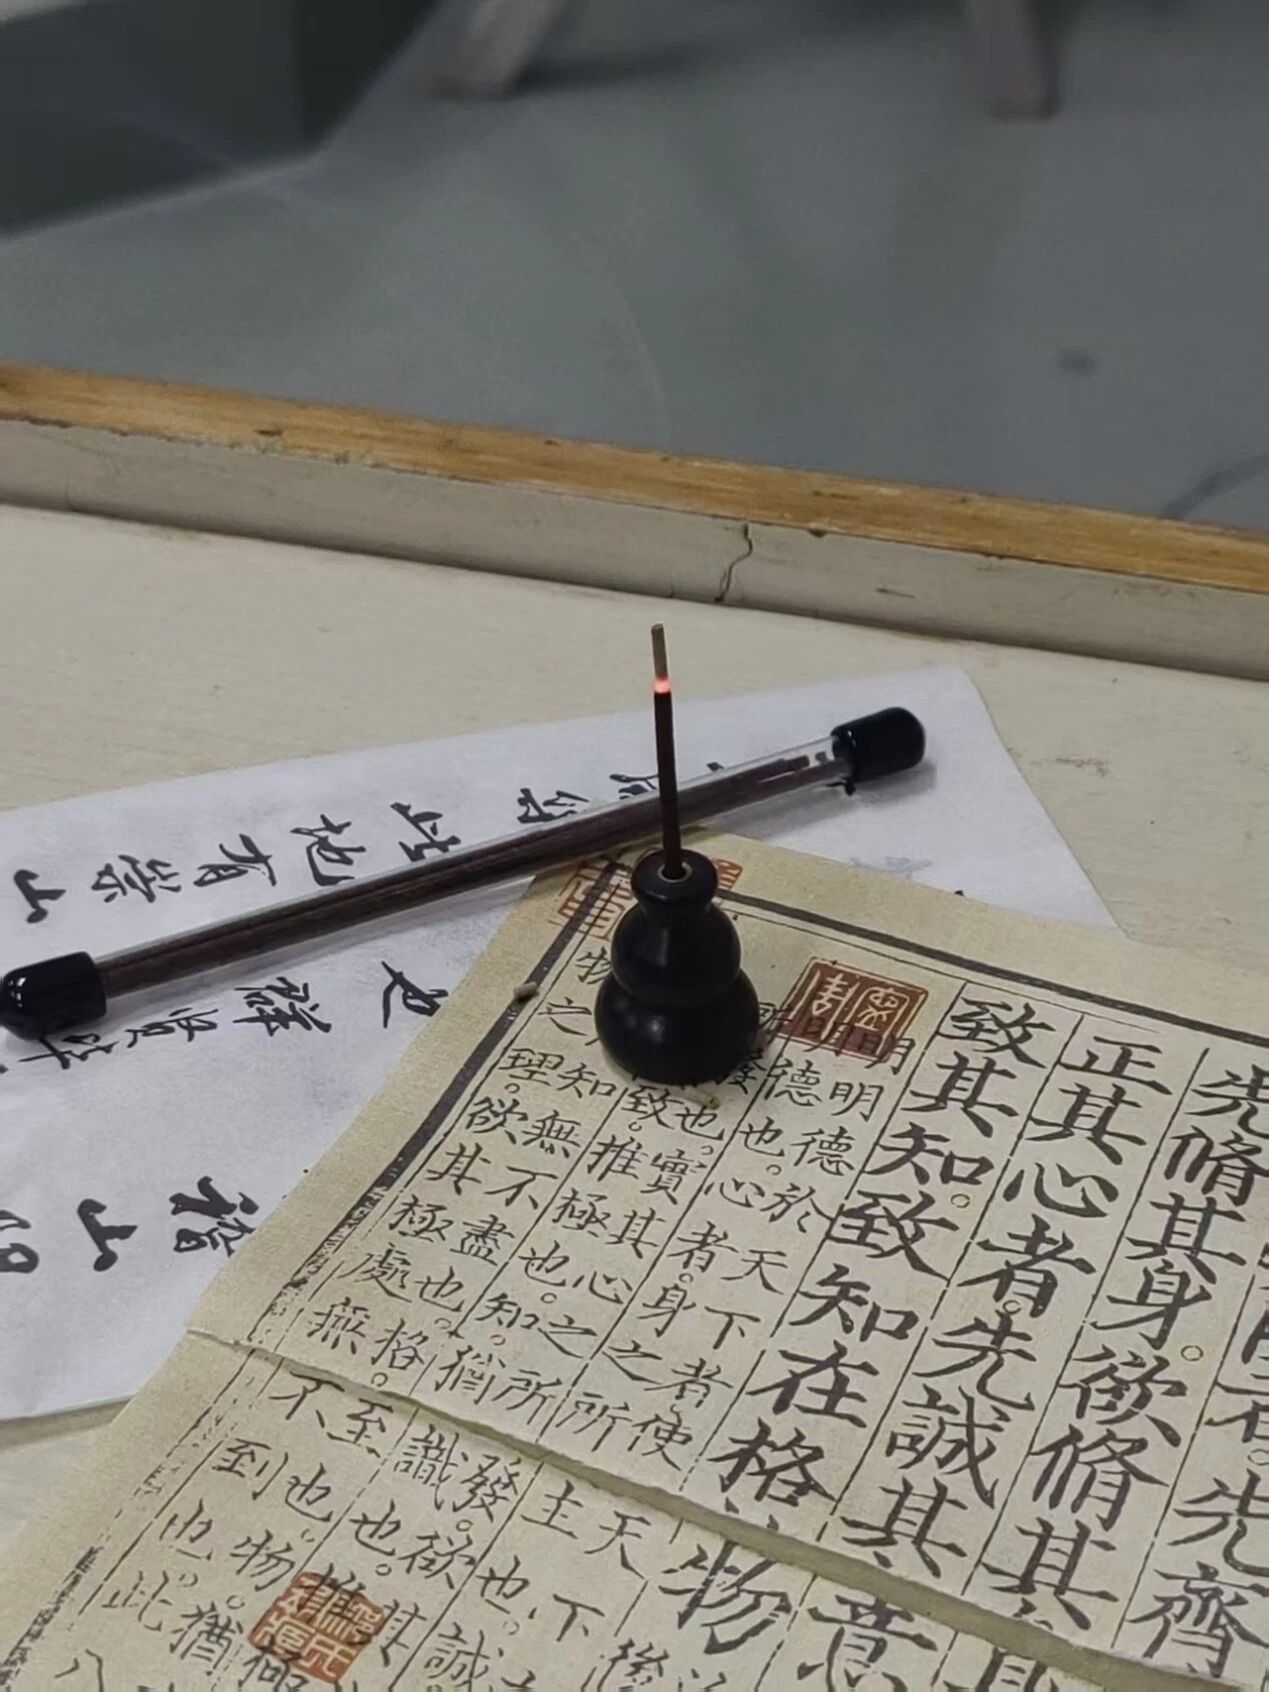 者。先齊
先脩其身。欲脩其
正其心者。先誠其意
致其知。致知在格物
明明德於天下者。使天下
明德也。心者。身之所主也。
也。實其心之所發。欲誠
致。推極也。知。猶識也。推其
知無不盡也。格。至也。物。猶
物之理欲其極處無不到也。此八
稽山陰
也群賢畢
此地有崇山